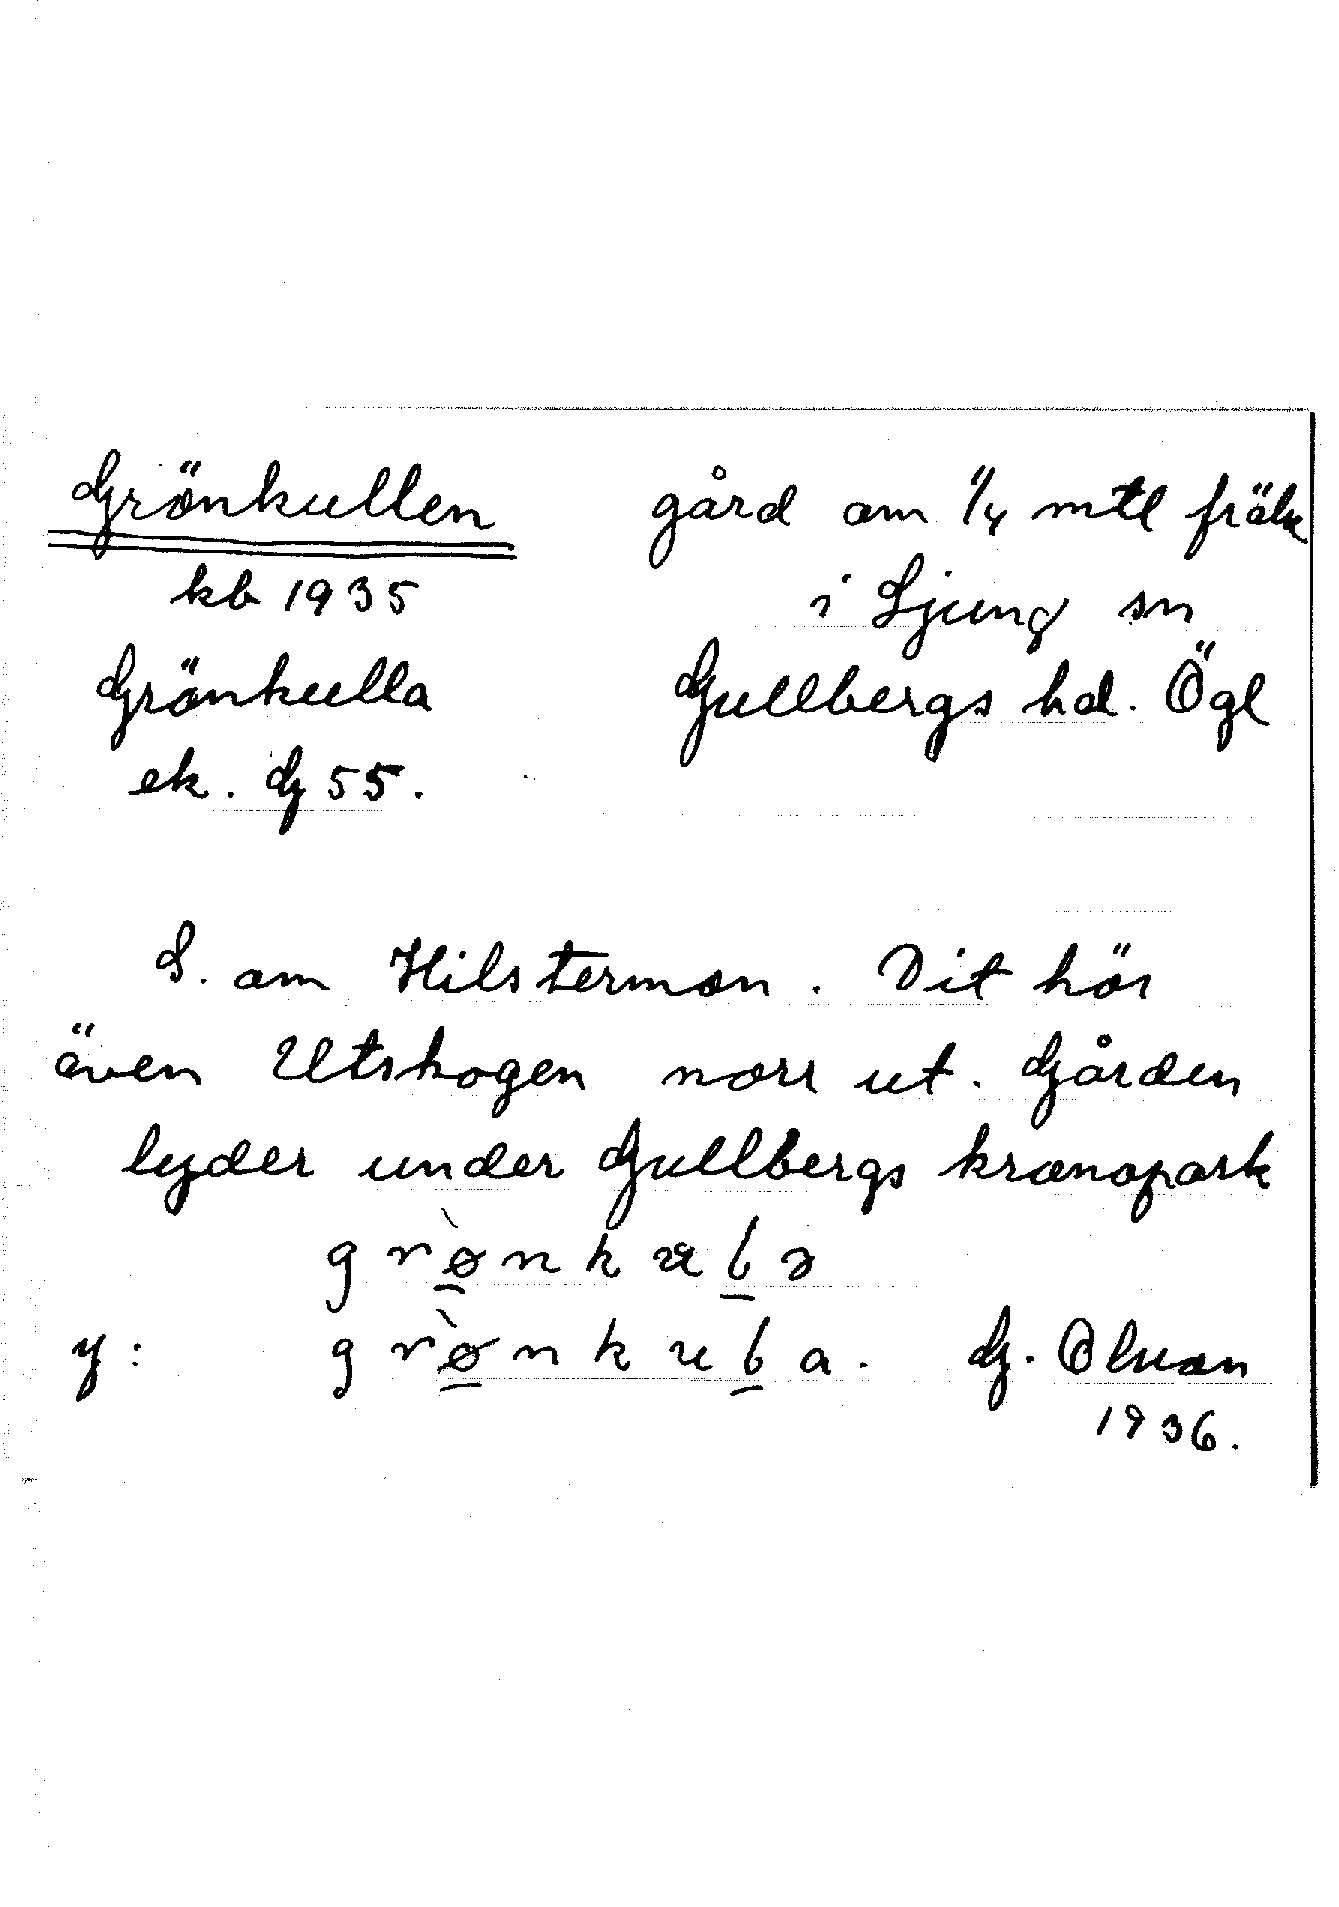 Grönkullen gård om 1/4 mtl frälse
kb 1935 i Ljung sn
Grönkulla Gullbergs hd. Ögl
ek. G 55.
S. om Hilstermon. Dit hör
även Utskogen norr ut. Gården
lyder under Gullbergs kronopark
y:
G. Olson
1936.